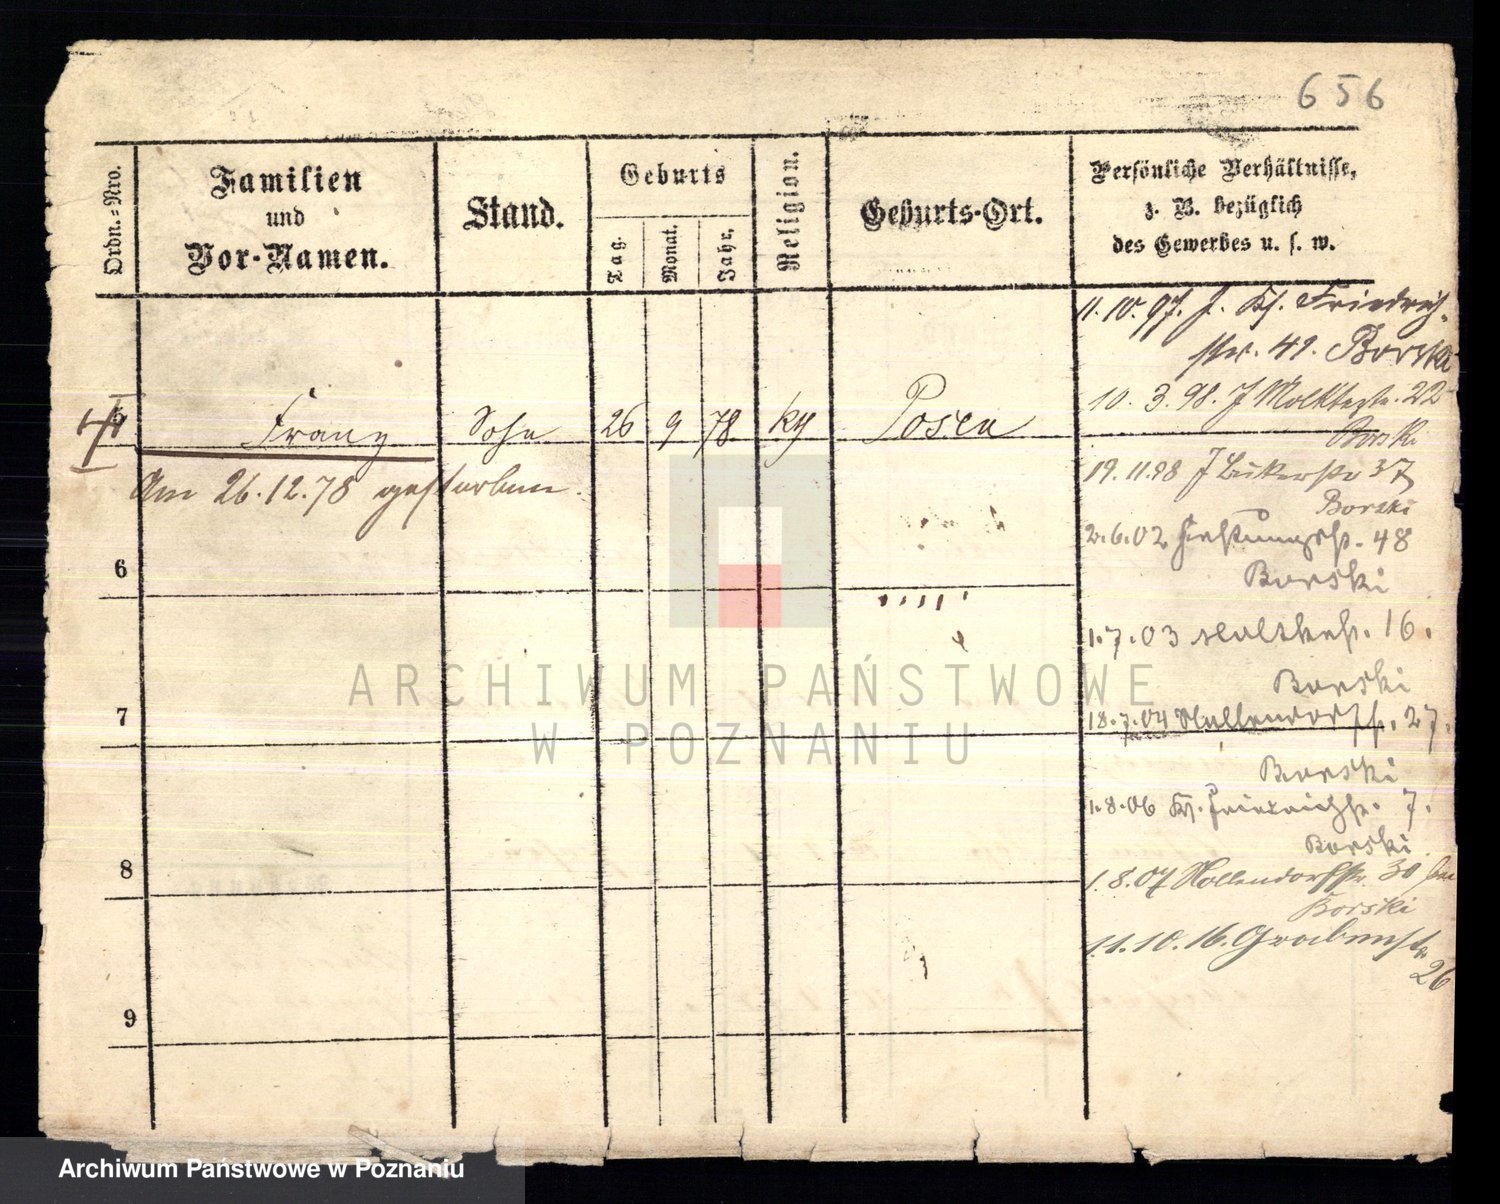 656
Ordn.=Nro.
Familien
und
Vor-Namen.
Stand.
Geburts
Tag.
Monat.
Jahr.
Religion.
Geburts-Ort.
Persönliche Verhältnisse,
z. B. bezüglich
des Gewerbes u. s. w.
11.10.97. J. Kl. Friedrich-
str. 41. Borski
10. 3. 98. J Moltkestr. 22
Borski
Franz Sohn 26 9 78 Posen
Am 26.12.78 gestorben.
19.11.98 J 37
Borski
2.6.02 48
Borski
6
1.7.03 Moltkest. 16.
Borski
7
18.7.04 Nollendorfst. 27.
Borski
1.8.06 Kl. Friedrichst. 7.
Borski
8
1.8.07 Nollendorfstr. 30
Borski
11.10.16. Grabenstr
26
9
ARCHIWUM PAŃSTWOWE
W POZNANIU
Archiwum Państwowe w Poznaniu